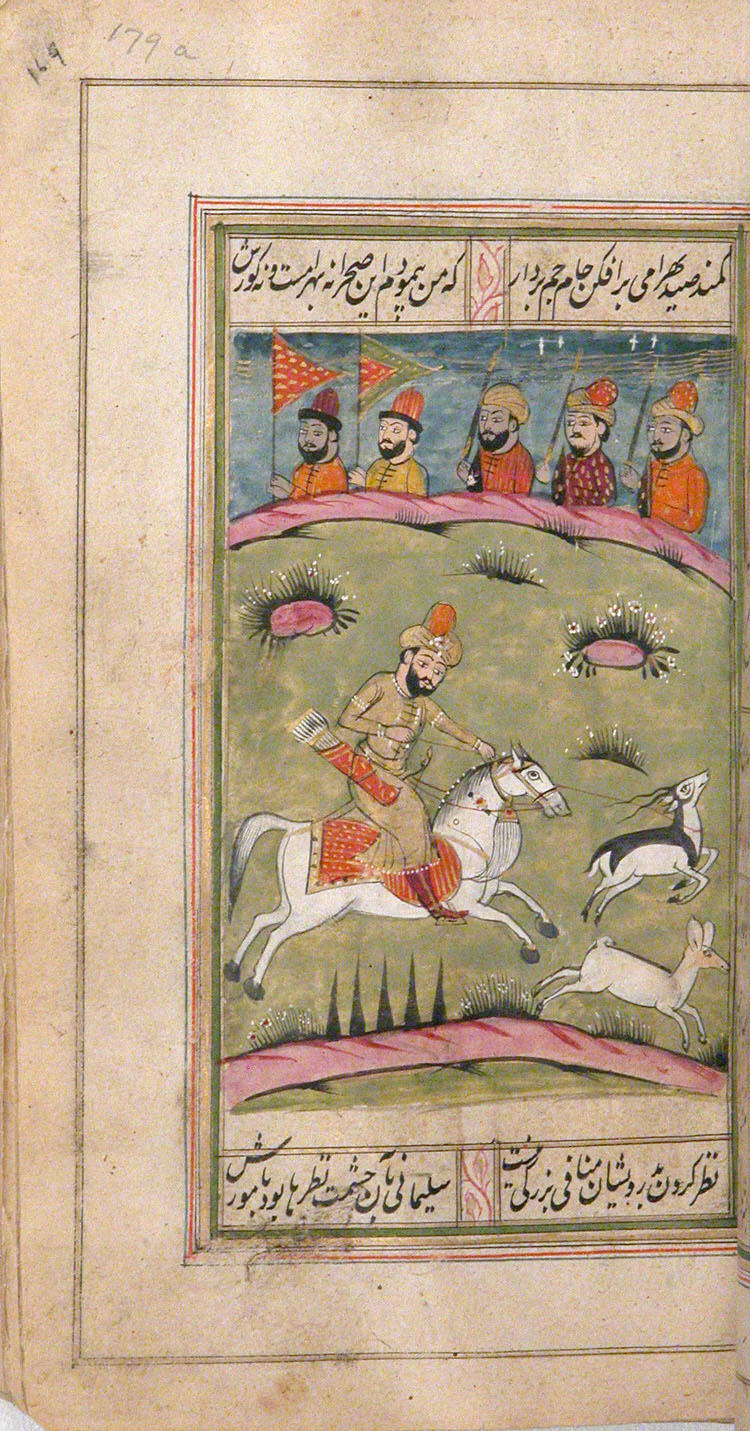 179 a
169
کمند صید بهرامی برافکن جام جم بردار
که من پیمودم این صحرا نه بهرامست و نه گورش
نظر کردن بدرویشان منافی بزرگی نیست
سلیمانی بآن حشمت نظرها بود با مورش